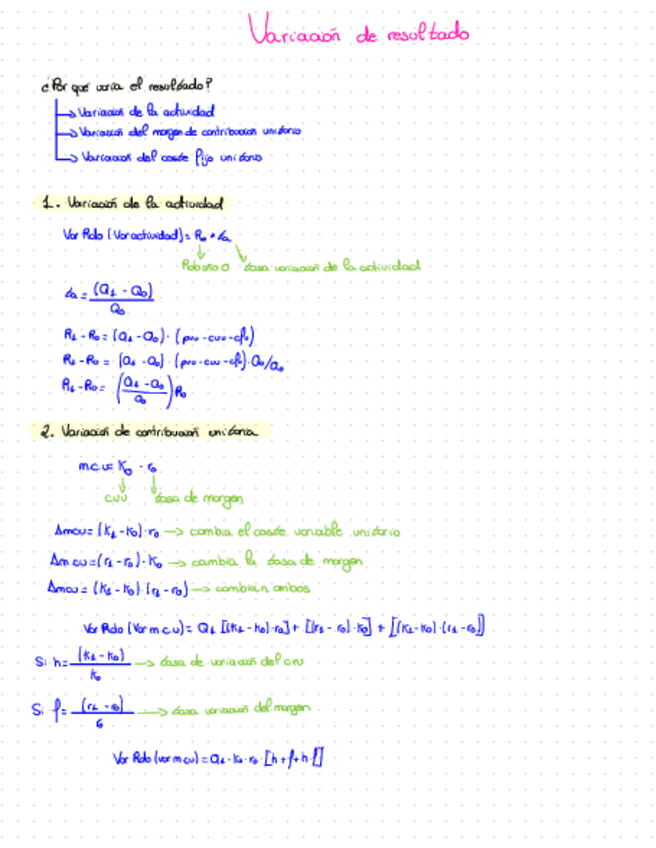 Variación de resultado
¿Por qué varia el resultado?
→ Variación de la actividad
→ Variación del margen de contribución unitario
→ Variación del coste fijo unitario
1. Variación de la actividad
Var Rdo (Var actividad) = R₀ · ta
Rdo año 0 tasa variación de la actividad
ta = (Q₁ - Q₀) / Q₀
R₁ - R₀ = (Q₁ - Q₀) · (pvu - cvu - cfu)
R₁ - R₀ = (Q₁ - Q₀) · (pvu - cvu - cfu) · Q₀/Q₀
R₁ - R₀ = ((Q₁ - Q₀) / Q₀) R₀
2. Variación de contribución unitaria
mcu = K₀ · r₀
cvu tasa de margen
Δmcu = (K₁ - K₀) · r₀ → cambia el coste variable unitario
Δmcu = (r₁ - r₀) · K₀ → cambia la tasa de margen
Δmcu = (K₁ - K₀) · (r₁ - r₀) → cambian ambos
Var Rdo (Var mcu) = Q₁ [(K₁ - K₀) · r₀] + [(r₁ - r₀) · K₀] + [(K₁ - K₀) · (r₁ - r₀)]
Si h = (K₁ - K₀) / K₀ → tasa de variación del cvu
Si f = (r₁ - r₀) / r₀ → tasa variación del margen
Var Rdo (var mcu) = Q₁ · K₀ · r₀ · [h + f + h · f]